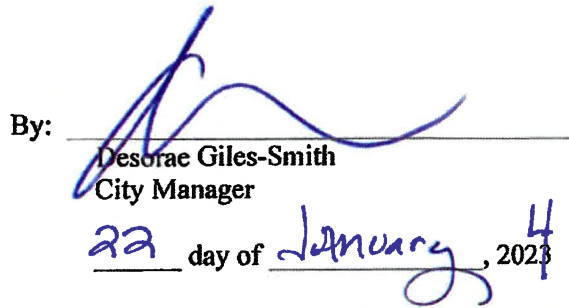 By:
Desorae Giles-Smith
City Manager
22 day of January, 2024